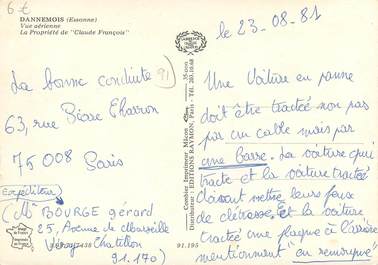 6€
DANNEMOIS (Essonne)
Vue aérienne
La Propriété de "Claude François"
le 23-08-81
La bonne conduite 91
63, rue Pierre Charron
75008 Paris
Expéditeur
(Mr BOURGE gérard
25, Avenue de
Viry-Chatillon
91.170)
Combier Imprimeur Mâcon
Distributeur : EDITIONS RAYMON, Paris - Tél. 205.10.68
91.195
Une Voiture en panne
doit être tractée non pas
par un cable mais par
une Barre. La voiture qui
tracte et la voiture tractée
doivent mettre leurs feux
de détresse. Et la voiture
tractée une plaque à l'arrière
mentionnent "en remorque"